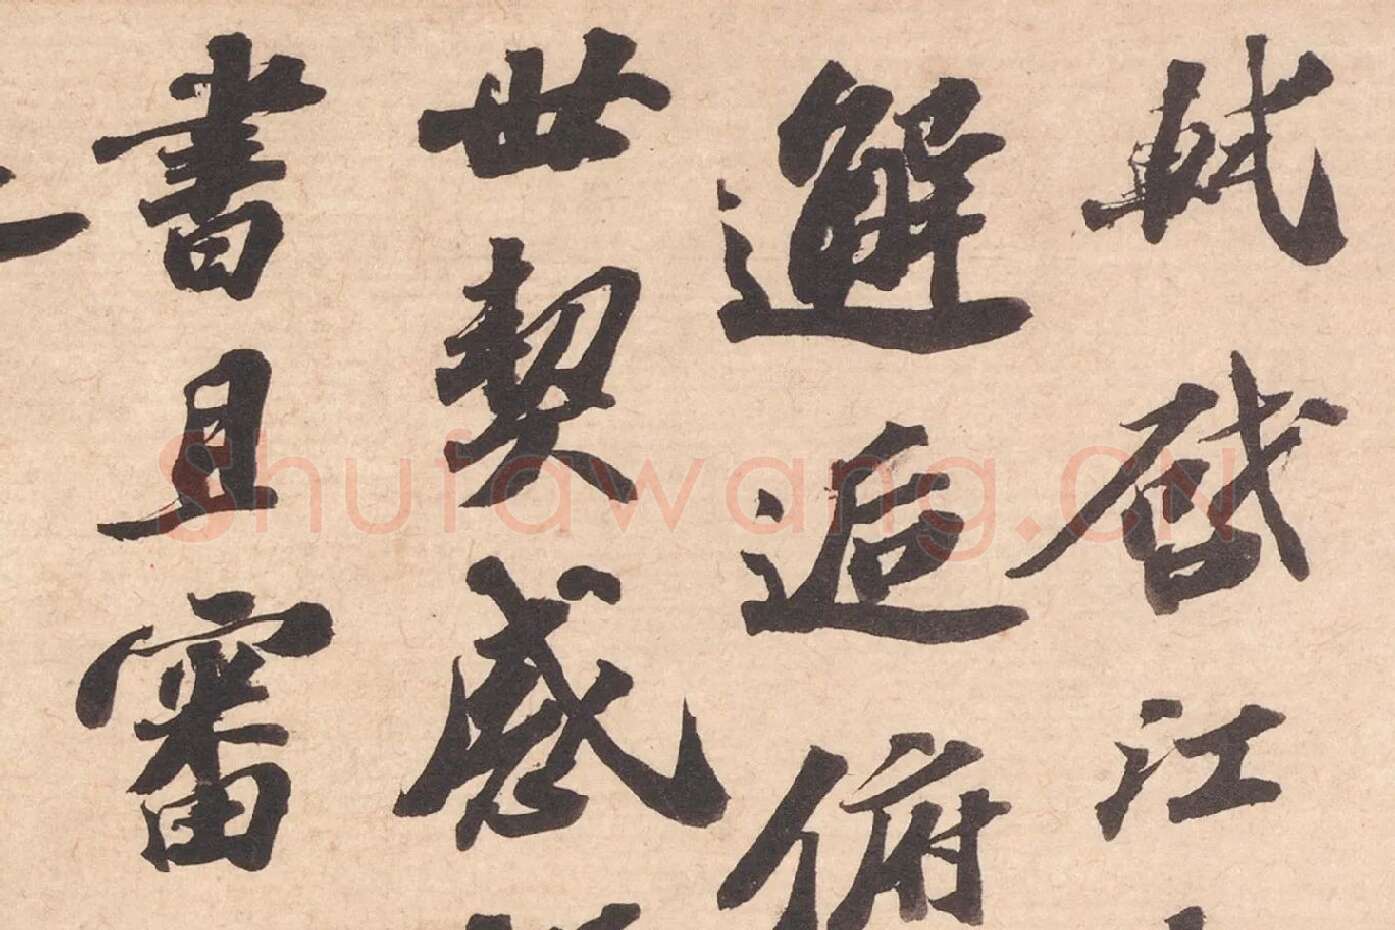 軾啟江
邂逅俯
世契感
書且審
Shufawang.CN